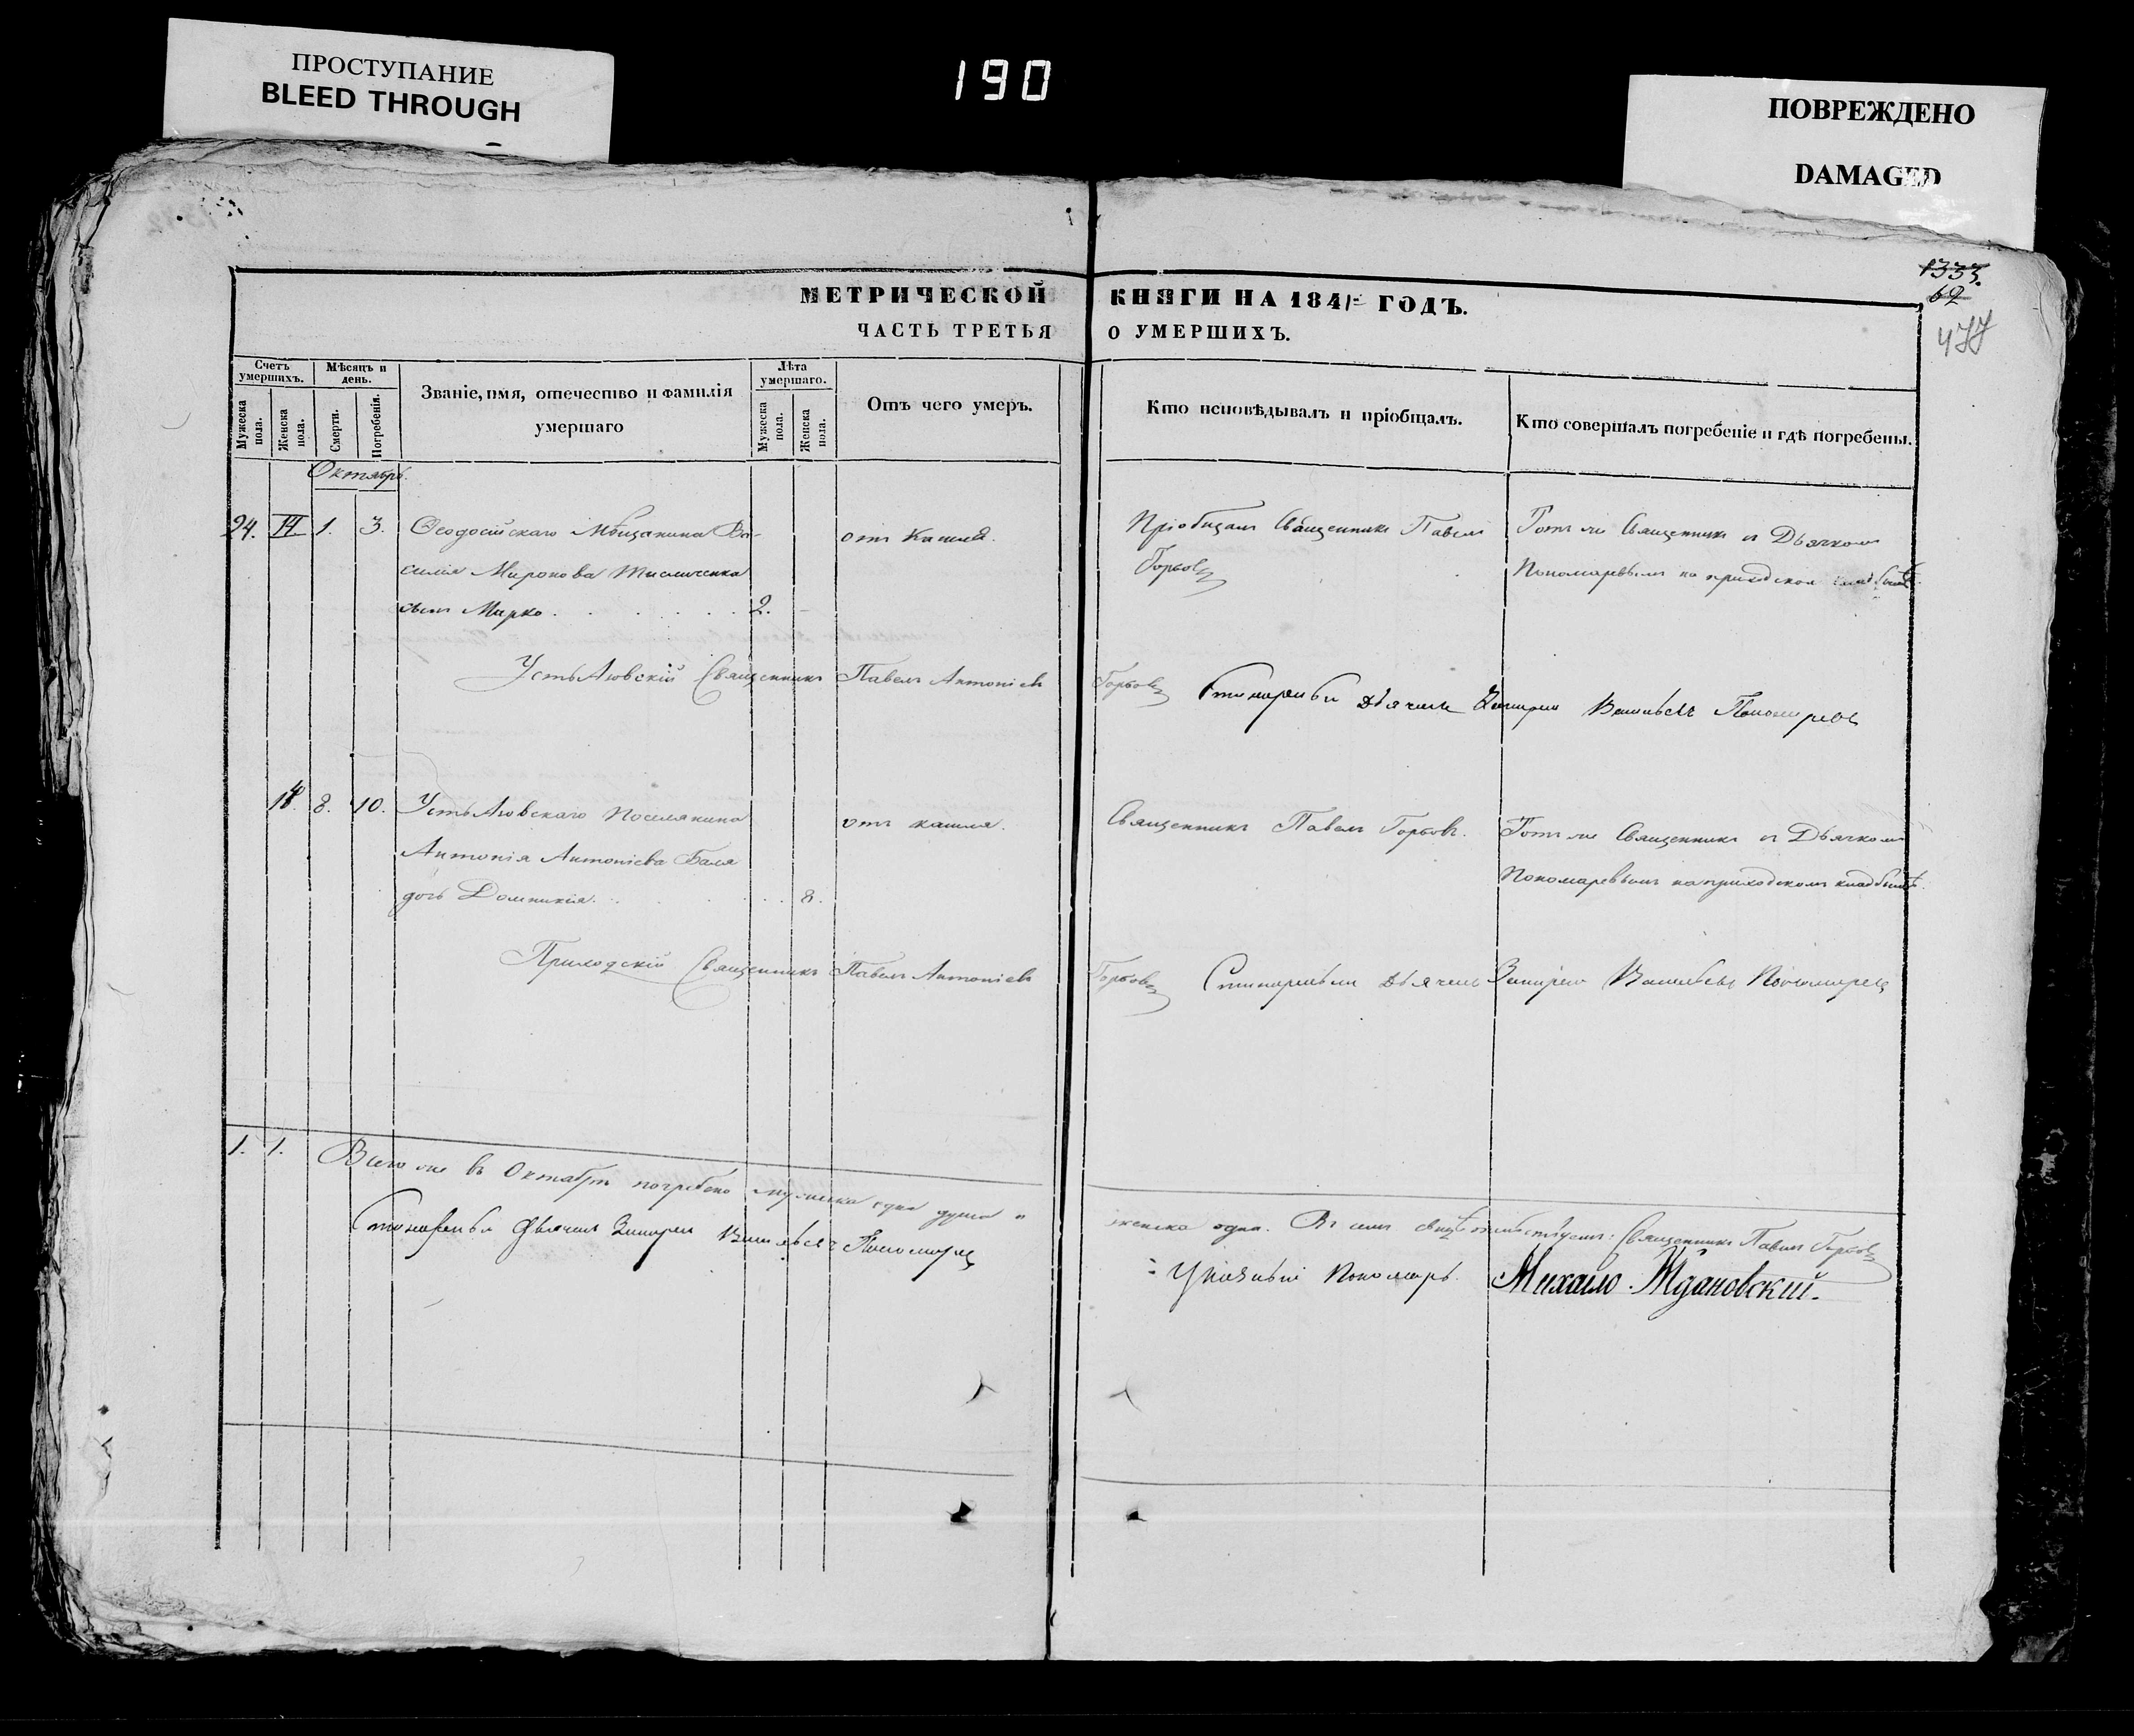 ПРОСТУПАНИЕ
BLEED THROUGH
190
ПОВРЕЖДЕНО
DAMAGED
1333.
62
477
МЕТРИЧЕСКОЙ КНИГИ НА 1841 ГОДЪ.
ЧАСТЬ ТРЕТЬЯ О УМЕРШИХЪ.
Счетъ умершихъ.
Мужеска пола.
Женска пола.
Мѣсяцъ и день.
Смерти.
Погребенія.
Званіе, имя, отечество и фамилія
умершаго
Лѣта умершаго.
Мужеска пола.
Женска пола.
Отъ чего умеръ.
Кто исповѣдывалъ и пріобщалъ.
Кто совершалъ погребеніе и гдѣ погребены.
Октябрь.
24. 1. 3. Ѳеодосійскаго Мѣщанина Ва- отъ Кашля. Пріобщалъ Священникъ Павелъ Тотъ же Священникъ съ Дьячкомъ
силія Миронова сынъ Марко 2. Горбовъ Пономаревымъ на приходскомъ кладбищѣ.
УстьАзовскій Священникъ Павелъ Антоніевъ Горбовъ Дьячекъ Васильевъ Пономаревъ
8. 10. УстьАзовскаго Поселянина отъ кашля. Священникъ Павелъ Горбовъ. Тотъ же Священникъ съ Дьячкомъ
Антонія Антоніева Пономаревымъ на приходскомъ кладбищѣ.
дочь Домникія 8.
Приходскій Священникъ Павелъ Антоніевъ Горбовъ Дьячекъ Васильевъ Пономаревъ
1. 1. Всего же въ Октябрѣ погребено мужеска одна душа и женска одна. Въ семъ свидѣтельствуетъ: Священникъ Павелъ Горбовъ
Дьячекъ Васильевъ Пономаревъ Указный Пономарь Михаило Ждановскій.